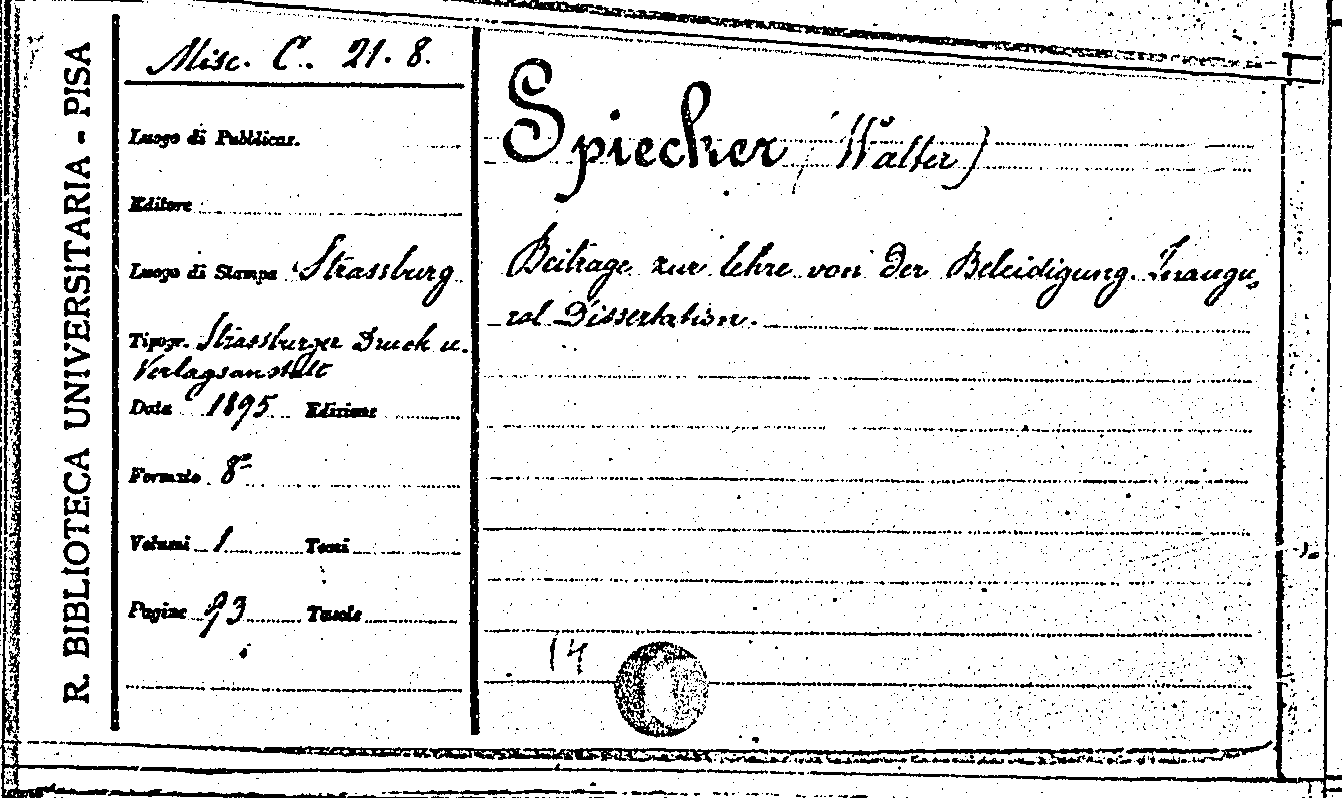 R. BIBLIOTECA UNIVERSITARIA - PISA
Misc. C. 21. 8.
Luogo di Pubblicaz.
Editore
Luogo di Stampa Strassburg
Tipogr. Strassburger Druck u.
Verlagsanstalt
Data 1895 Edizione
Formato 8º
Volumi 1 Tomi
Pagine 93 Tavole
Spiecker (Walter)
Beitrage zur lehre von der Beleidigung. Inaugu,
ral Dissertation.
14